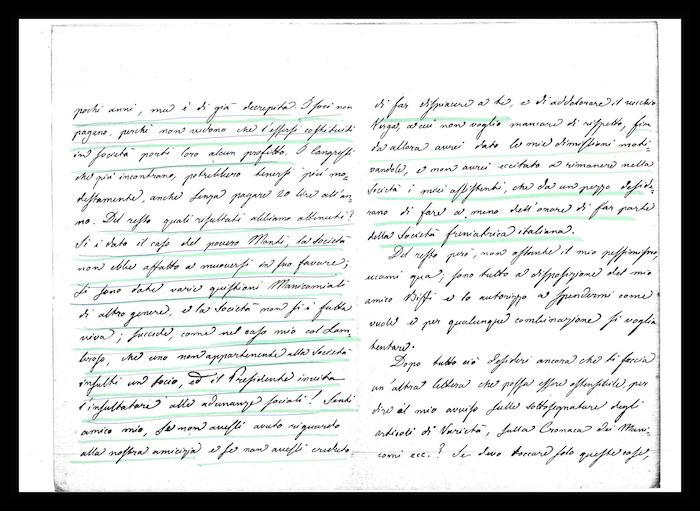 pochi anni, ma è di già decrepita. I soci non
pagano, perché non vedono che l'essersi costituiti
in società porti loro alcun profitto. I Congressi
che già incontrano, potrebbero tenersi più mo-
destamente, anche senza pagare 20 lire all'an-
no. Del resto quali risultati abbiamo ottenuti?
Si è dato il caso del povero Monti, la Società
non ebbe affatto a muoversi in suo favore;
si sono date varie questioni Manicomiali
di altro genere, e la Società non si è fatta
viva; succede, come nel caso mio col Lom-
broso, che uno non appartenente alla Società
insulti un socio, ed il Presidente invita
l'insultatore alle adunanze sociali! Senti
amico mio, se non avessi avuto riguardo
alla nostra amicizia e se non avessi creduto
di far dispiacere a te, e di addolorare il vecchio
Verga, a cui non voglio mancare di rispetto, fin
da allora avrei dato le mie dimissioni moti-
vandole, e non avrei eccitato a rimanere nella
Società i miei assistenti, che da un pezzo deside-
rano di fare a meno dell'onore di far parte
della Società freniatrica italiana.
Del resto però, non ostante il mio pessimismo,
eccomi qua; sono tutto a disposizione del mio
amico Biffi e lo autorizzo a spendermi come
vuole e per qualunque combinazione si voglia
tentare.
Dopo tutto ciò desideri ancora che ti faccia
un'altra lettera che possa essere ostensibile, per
dire il mio avviso sulle sottosegnature degli
articoli di Varietà, sulla Cronaca dei Mani-
comi ecc.? Se devo toccare solo queste cose,